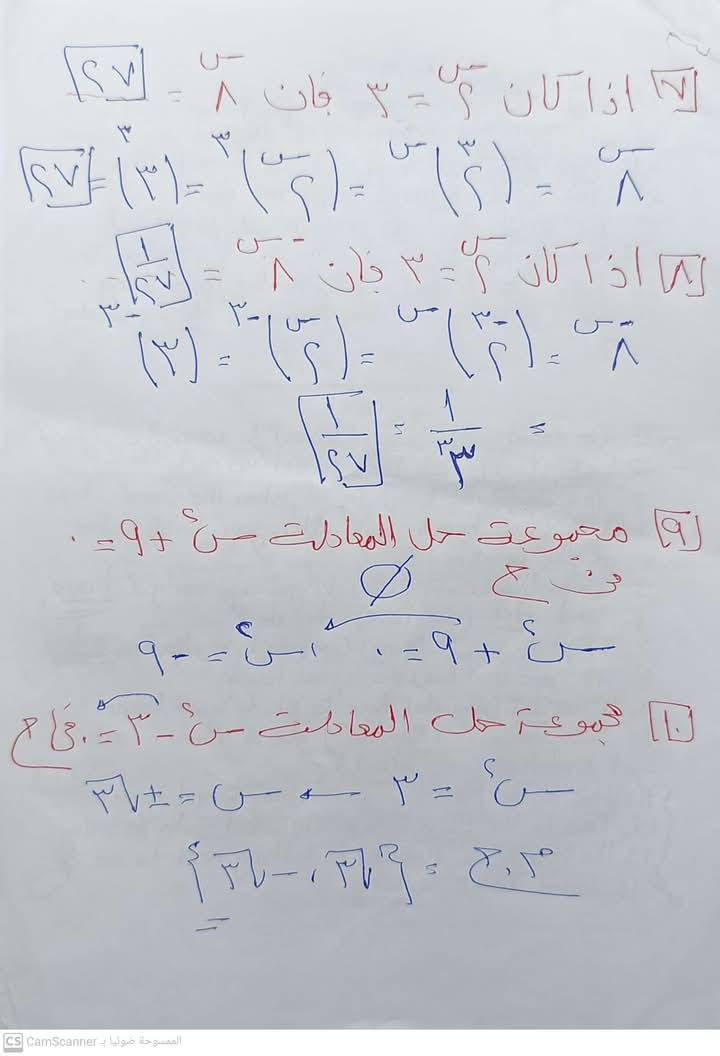 ٧ اذا كان ٢^س = ٣ فان ٨^س = ٢٧
٨^س = (٢^٣)^س = (٢^س)^٣ = (٣)^٣ = ٢٧
٨ اذا كان ٢^س = ٣ فان ٨^-س = ١/٢٧
٨^-س = (٢^-٣)^س = (٢^س)^-٣ = (٣)^-٣
= ١/٣^٣ = ١/٢٧
٩ مجموعة حل المعادلة س^٢ + ٩ = ٠
في ح ∅
س^٢ + ٩ = ٠ ، س^٢ = -٩
١٠ مجموعة حل المعادلة س^٢ - ٣ = ٠ في ح
س^٢ = ٣ ← س = ±√٣
م.ح = {√٣ ، -√٣}
CS CamScanner الممسوحة ضوئيا بـ